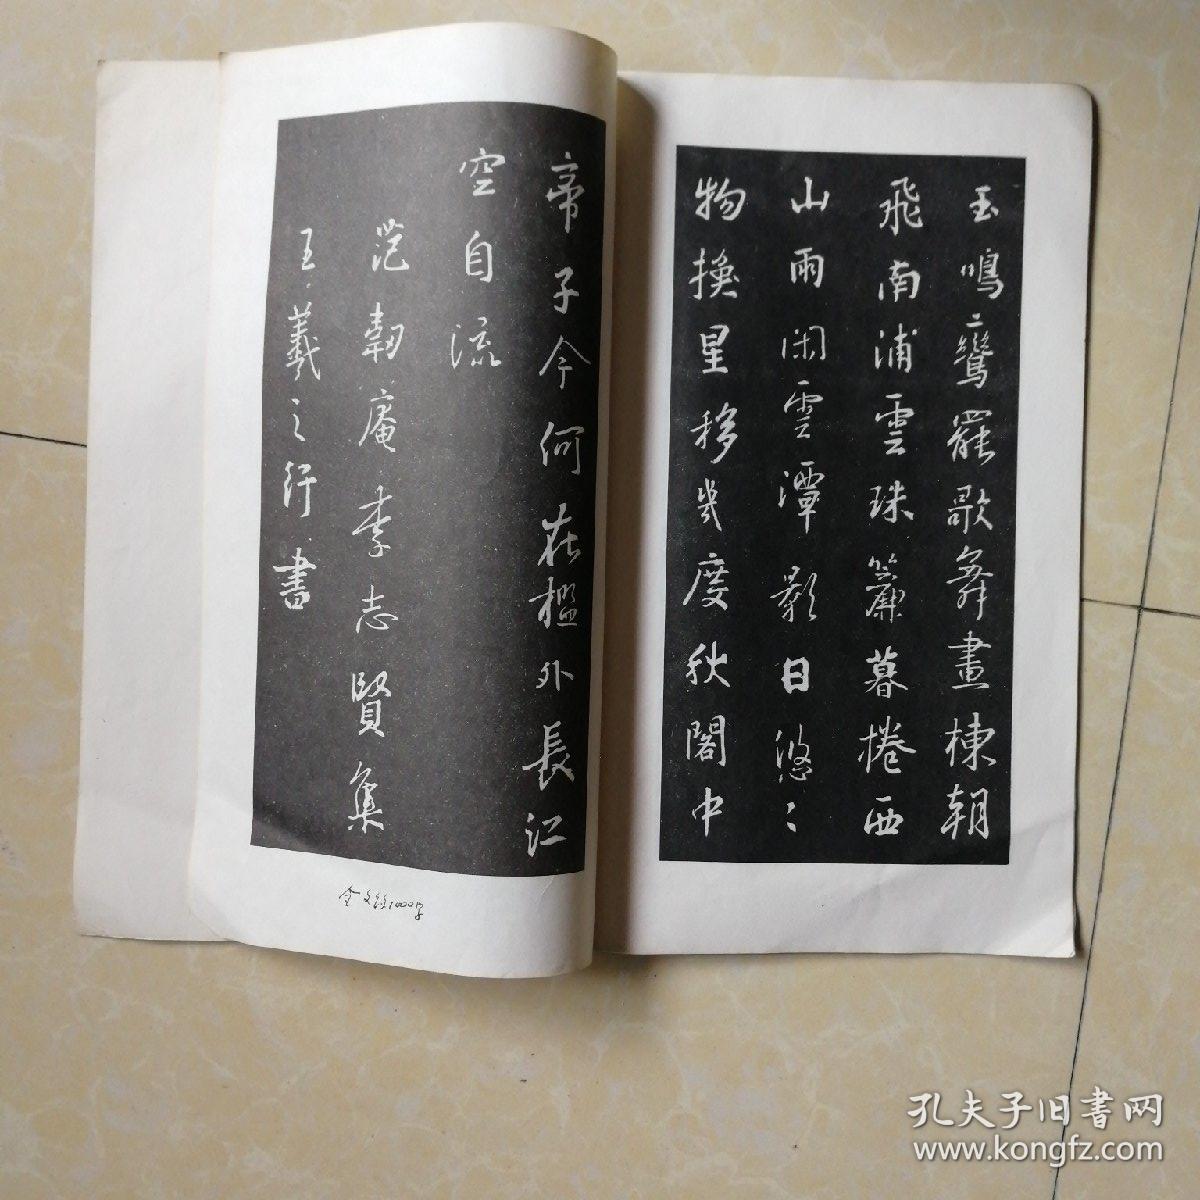 玉鳴鸞罷歌舞畫棟朝
飛南浦雲珠簾暮捲西
山雨闲雲潭影日悠〻
物換星移幾度秋閣中
帝子今何在檻外長江
空自流
范韌庵李志賢集
王羲之行書
全文约1000字
孔夫子旧书网
www.kongfz.com